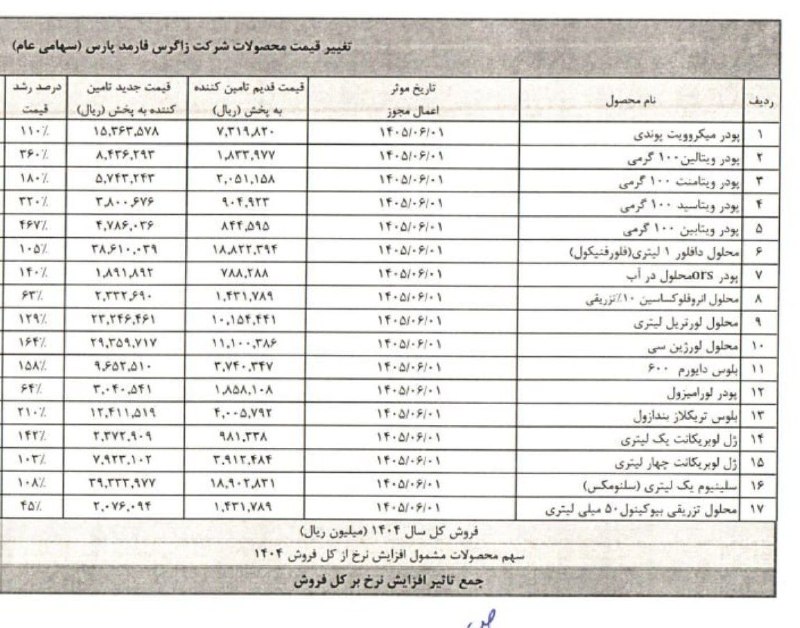 تغییر قیمت محصولات شرکت زاگرس فارمد پارس (سهامی عام)
ردیف نام محصول تاریخ موثر اعمال مجوز قیمت قدیم تامین کننده به پخش (ریال) قیمت جدید تامین کننده به پخش (ریال) درصد رشد قیمت
۱ پودر میکروویت پوندی ۱۴۰۵/۰۶/۰۱ ۷,۳۱۹,۸۲۰ ۱۵,۳۶۳,۵۷۸ ۱۱۰٪
۲ پودر ویتالین ۱۰۰ گرمی ۱۴۰۵/۰۶/۰۱ ۱,۸۳۳,۹۷۷ ۸,۴۳۶,۲۹۳ ۳۶۰٪
۳ پودر ویتامنت ۱۰۰ گرمی ۱۴۰۵/۰۶/۰۱ ۲,۰۵۱,۱۵۸ ۵,۷۴۳,۲۴۳ ۱۸۰٪
۴ پودر ویتاسید ۱۰۰ گرمی ۱۴۰۵/۰۶/۰۱ ۹۰۴,۹۲۳ ۳,۸۰۰,۶۷۶ ۳۲۰٪
۵ پودر ویتابین ۱۰۰ گرمی ۱۴۰۵/۰۶/۰۱ ۸۴۴,۵۹۵ ۴,۷۸۶,۰۳۶ ۴۶۷٪
۶ محلول دافلور ۱ لیتری(فلورفنیکول) ۱۴۰۵/۰۶/۰۱ ۱۸,۸۲۲,۳۹۴ ۳۸,۶۱۰,۰۳۹ ۱۰۵٪
۷ پودر orsمحلول در آب ۱۴۰۵/۰۶/۰۱ ۷۸۸,۲۸۸ ۱,۸۹۱,۸۹۲ ۱۴۰٪
۸ محلول انروفلوکساسین ۱۰٪تزریقی ۱۴۰۵/۰۶/۰۱ ۱,۴۳۱,۷۸۹ ۲,۳۳۲,۶۹۰ ۶۳٪
۹ محلول لورتریل لیتری ۱۴۰۵/۰۶/۰۱ ۱۰,۱۵۴,۴۴۱ ۲۳,۲۴۶,۴۶۱ ۱۲۹٪
۱۰ محلول لورژین سی ۱۴۰۵/۰۶/۰۱ ۱۱,۱۰۰,۳۸۶ ۲۹,۳۵۹,۷۱۷ ۱۶۴٪
۱۱ بلوس دایورم ۶۰۰ ۱۴۰۵/۰۶/۰۱ ۳,۷۴۰,۳۴۷ ۹,۶۵۲,۵۱۰ ۱۵۸٪
۱۲ پودر لورامیزول ۱۴۰۵/۰۶/۰۱ ۱,۸۵۸,۱۰۸ ۳,۰۴۰,۵۴۱ ۶۴٪
۱۳ بلوس تریکلاز بندازول ۱۴۰۵/۰۶/۰۱ ۴,۰۰۵,۷۹۲ ۱۲,۴۱۱,۵۱۹ ۲۱۰٪
۱۴ ژل لوبریکانت یک لیتری ۱۴۰۵/۰۶/۰۱ ۹۸۱,۳۳۸ ۲,۳۷۲,۹۰۹ ۱۴۲٪
۱۵ ژل لوبریکانت چهار لیتری ۱۴۰۵/۰۶/۰۱ ۳,۹۱۲,۴۸۴ ۷,۹۲۳,۱۰۲ ۱۰۳٪
۱۶ سلینیوم یک لیتری (سلنومکس) ۱۴۰۵/۰۶/۰۱ ۱۸,۹۰۲,۸۳۱ ۳۹,۳۳۳,۹۷۷ ۱۰۸٪
۱۷ محلول تزریقی بیوکینول۵۰ میلی لیتری ۱۴۰۵/۰۶/۰۱ ۱,۴۳۱,۷۸۹ ۲,۰۷۶,۰۹۴ ۴۵٪
فروش کل سال ۱۴۰۴ (میلیون ریال)
سهم محصولات مشمول افزایش نرخ از کل فروش ۱۴۰۴
جمع تاثیر افزایش نرخ بر کل فروش